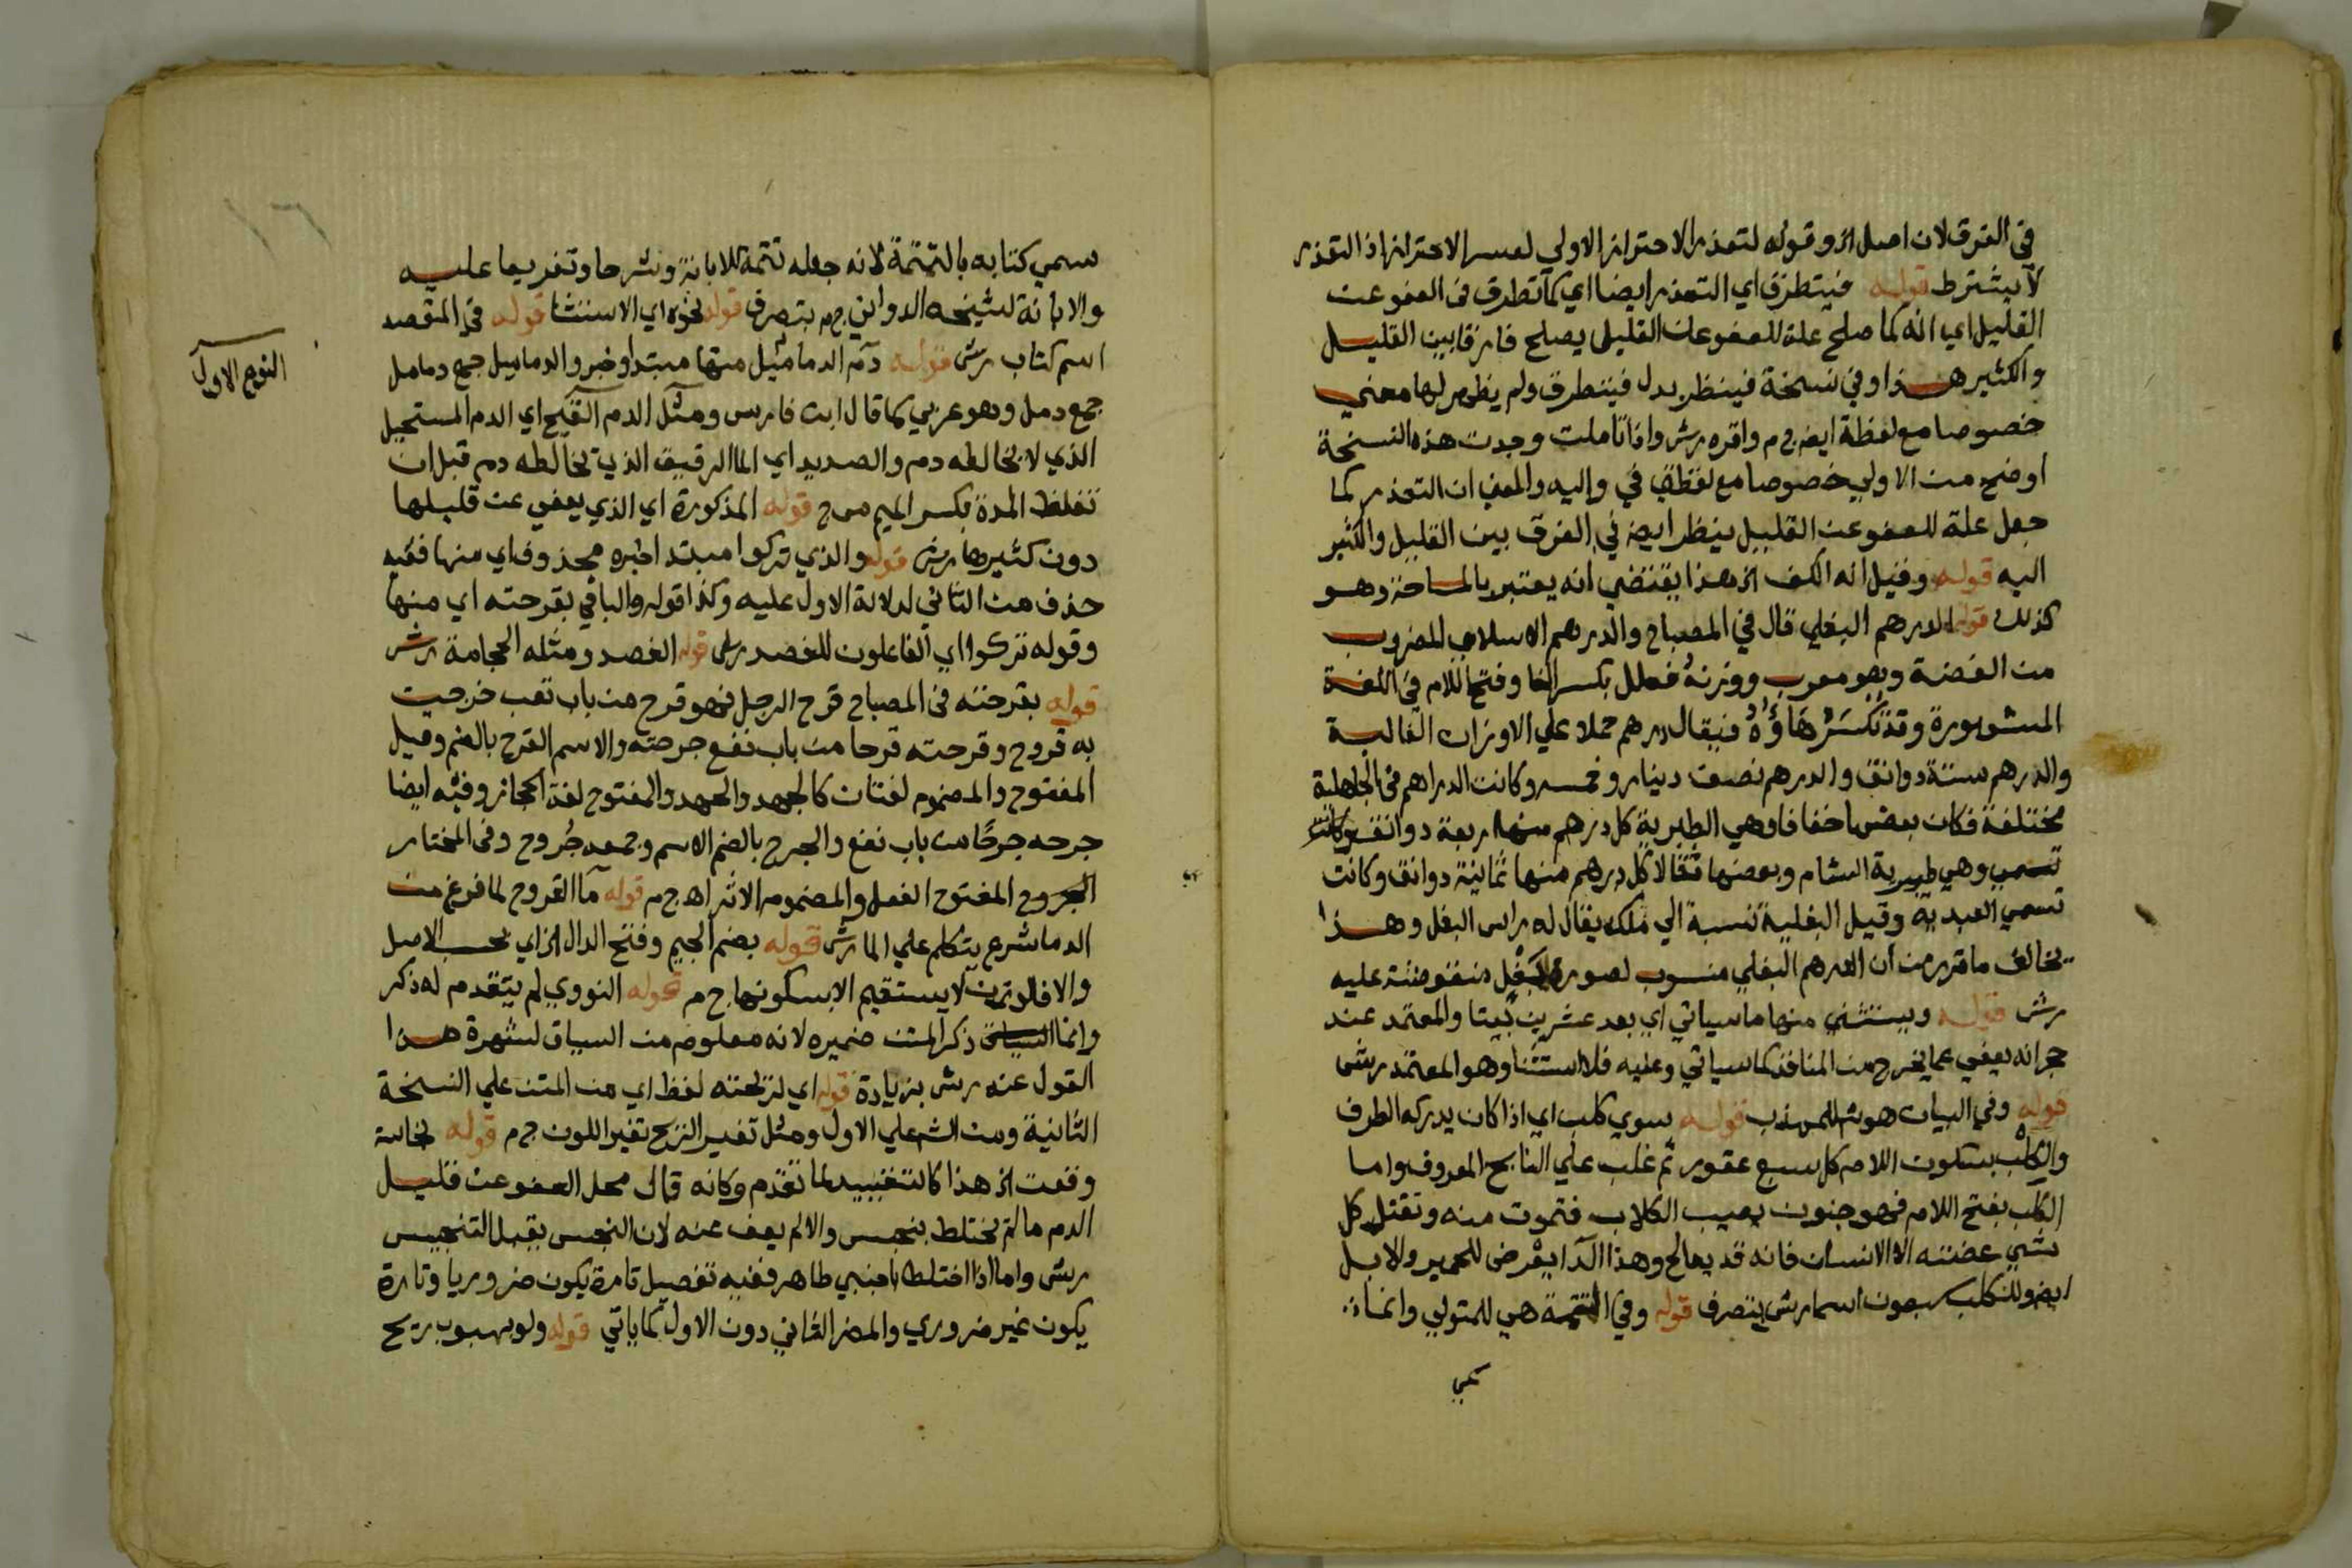 في الفرق لان اصل الخ وقوله لتعذر الاحتراز الاولي لعسر الاحتراز اذ التعذر
لا يشترط قوله فيتطرق اي التعذر ايضا اي كما تطرق في العفو عن
القليل اي انه كما صلح علة للعفو عن القليل يصلح فارقا بين القليل
والكثير هذا وفي نسخة فينظر بدل فيتطرق ولم يظهر لها معني
خصوصا مع لفظة ايضا ج م واقره رش واذا تاملت وجدت هذه النسخة
اوضح من الاولي خصوصا مع لفظة في واليه والمعني ان التعذر كما
جعل علة للعفو عن القليل ينظر ايضا في الفرق بين القليل والكثير
اليه قوله وقيل انه الكف الخ هذا يقتضي انه يعتبر بالمساحة وهو
كذلك قوله الدرهم البغلي قال في المصباح والدرهم الاسلامي المضروب
من الفضة وهو معرب ووزنه فعلل بكسر الفا وفتح اللام في اللغة
المشهورة وقد تكسر هاؤه فيقال درهم حملا علي الاوزان الغالبة
والدرهم ستة دوانق والدرهم نصف دينار وخمسه وكانت الدراهم في الجاهلية
مختلفة فكان بعضها خفافا وهي الطبرية كل درهم منها اربعة دوانق وكانت
تسمي وهي طبرية الشام وبعضها ثقالا كل درهم منها ثمانية دوانق وكانت
تسمي العبدية وقيل البغلية نسبة الي ملك يقال له راس البغل وهذا
يخالف ما قرر من ان الدرهم البغلي منسوب لصورة بغل منقوشة عليه
رش قوله ويستثني منها ما سياتي اي بعد عشرين بيتا والمعتمد عند
حجر انه يعفي عما يخرج من المنافذ كما سياتي وعليه فلا استثنا وهو المعتمد رش
قوله وفي البيان هو شر المهذب قوله سوي كلب اي اذا كان يدركه الطرف
والكلب بسكون اللام كل سبع عقور ثم غلب علي النابح المعروف واما
الكلب بفتح اللام فهو جنون يصيب الكلاب فتموت منه وتقتل كل
شي عضته الا الانسان فانه قد يعالج وهذا الدا يعرض للحمير والابل
ايضا وللكلب سبعون اسما رش بتصرف قوله وفي التتمة هي للمتولي وانما
سمي
سمي كتابه بالتتمة لانه جعله تتمة للابانة وشرحا وتفريعا عليه
والابانة لشيخه ج م بتصرف قوله نحوه اي الاستثنا قوله في المقصد
اسم كتاب رش قوله دم الدماميل منها مبتدا وخبر والدماميل جمع دمامل
جمع دمل وهو عربي كما قال ابن فارس ومثل الدم القيح اي الدم المستحيل
الذي لا يخالطه دم والصديد اي الما الرقيق الذي يخالطه دم قبل ان
تغلظ المدة بكسر الميم قوله المذكورة اي الذي يعفي عن قليلها
دون كثيرها رش قوله والذي تركوا مبتدا خبره محذوف اي منها ففيه
حذف من الثاني لدلالة الاول عليه وكذا قوله والباقي بقرحته اي منها
وقوله تركوا اي الفاعلون للفصد رش قوله الفصد ومثله الحجامة رش
قوله بقرحته في المصباح قرح الرجل فهو قرح من باب تعب خرجت
به قروح وقرحته قرحا من باب نفع جرحته والاسم القرح بالضم وقيل
المفتوح والمضموم لغتان كالجهد والجهد والمفتوح لغة الحجاز وفيه ايضا
جرحه جرحا من باب نفع والجرح بالضم الاسم وجمعه جروح وفي المختار
الجروح المفتوح الفعل والمضموم الاثر اه ج م قوله ما القروح لما فرغ من
الدما شرع يتكلم علي الما رش قوله بضم الجيم وفتح الدال الخ اي بحسب الاصل
والا فالوزن لا يستقيم الا بسكونها ج م قوله النووي لم يتقدم له ذكر
وانما ذكر المتن ضميره لانه معلوم من السياق لشهرة هذا
القول عنه رش بزيادة قوله اي لريحته لفظ اي من المتن علي النسخة
الثانية ومن الشر علي الاول ومثل تغير الريح تغير اللون ج م قوله نجاسة
وقعت الخ هذا كالتقييد لما تقدم وكانه قال محل العفو عن قليل
الدم ما لم يختلط بنجس والا لم يعف عنه لان النجس يقبل التنجيس
رش واما اذا اختلط باجنبي طاهر ففيه تفصيل تارة يكون ضروريا وتارة
يكون غير ضروري والمضر الثاني دون الاول كما ياتي قوله ولو بهبوب ريح
النوع الاول
١٦